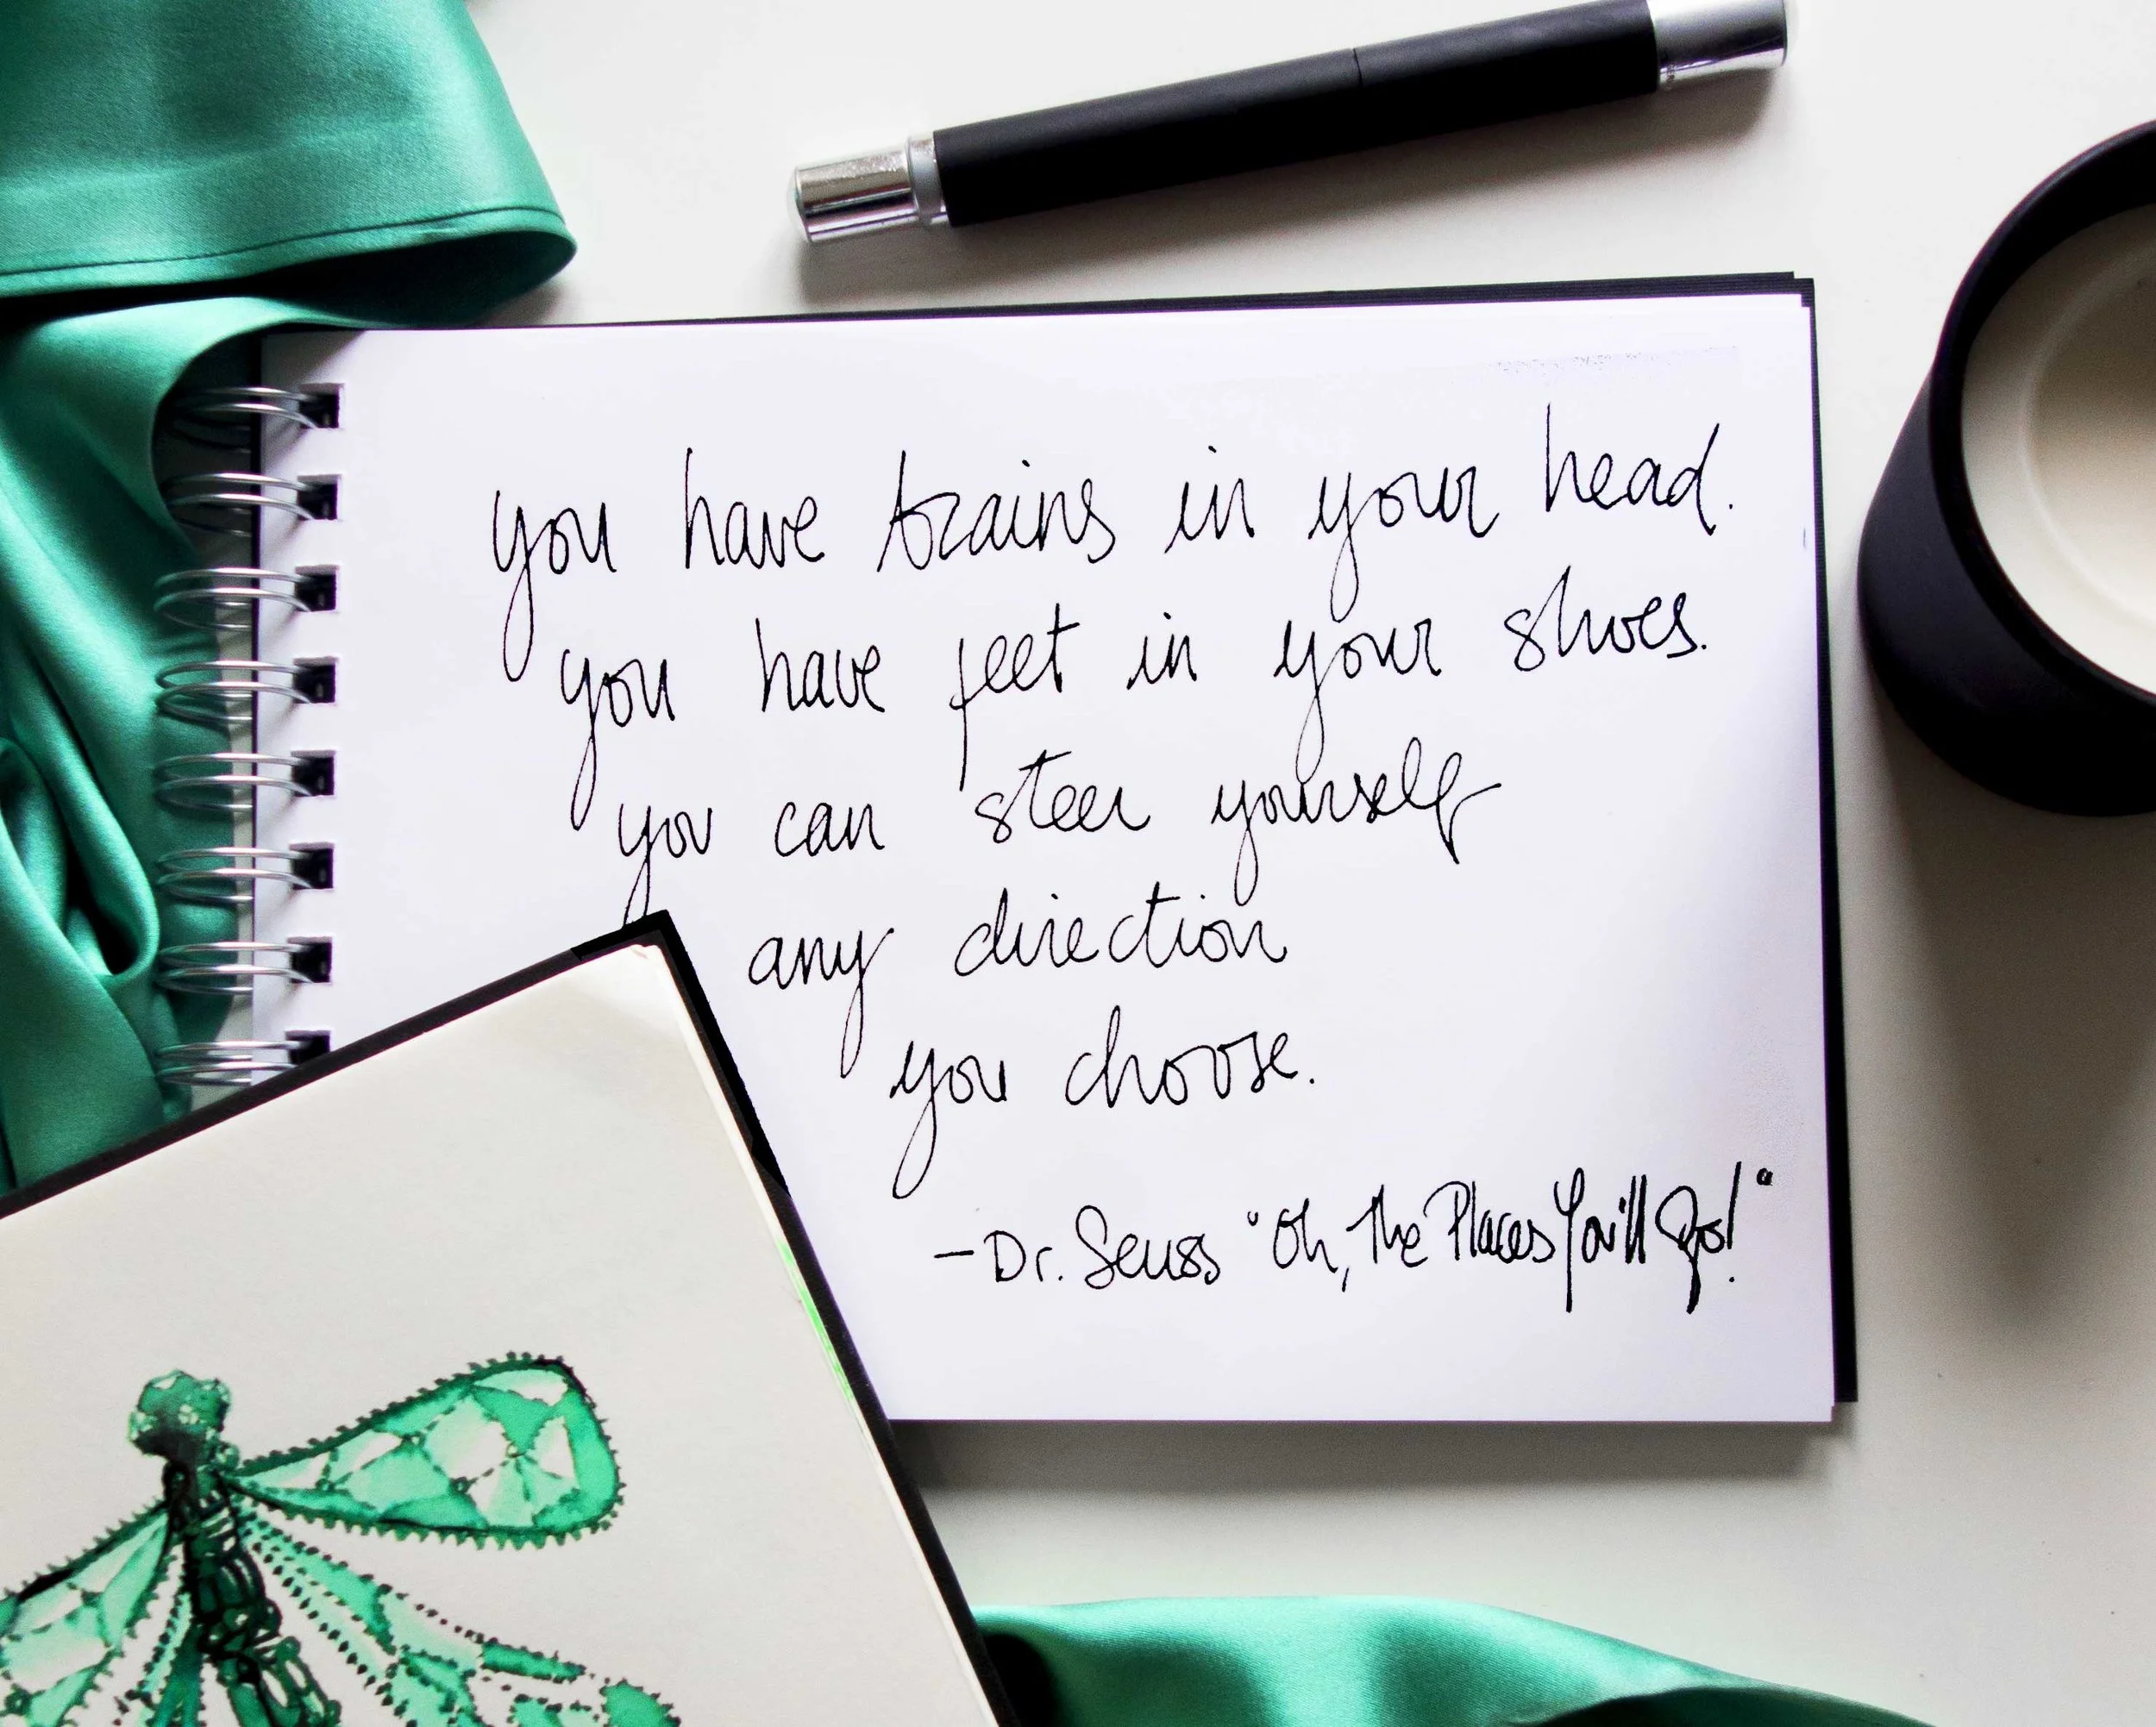 you have brains in your head.
you have feet in your shoes.
you can steer yourself
any direction
you choose.
- Dr. Seuss "Oh, The Places You'll Go!"